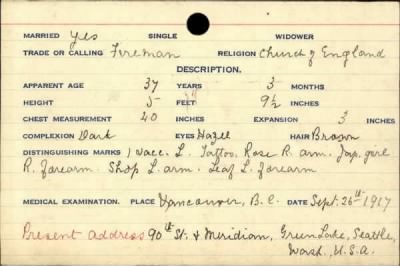 MARRIED Yes SINGLE WIDOWER
TRADE OR CALLING Fireman RELIGION Church of England
DESCRIPTION.
APPARENT AGE 37 YEARS 3 MONTHS
HEIGHT 5 FEET 9½ INCHES
CHEST MEASUREMENT 40 INCHES EXPANSION 3 INCHES
COMPLEXION Dark EYES Hazel HAIR Brown
DISTINGUISHING MARKS 1 Vacc. L. Tattoo, Rose R. arm. Jap. girl
R. forearm. Ship L. arm. Leaf L. forearm
MEDICAL EXAMINATION. PLACE Vancouver, B.C. DATE Sept. 26th 1917
Present Address 90th St. & Meridian, Green Lake, Seattle,
Wash. U.S.A.